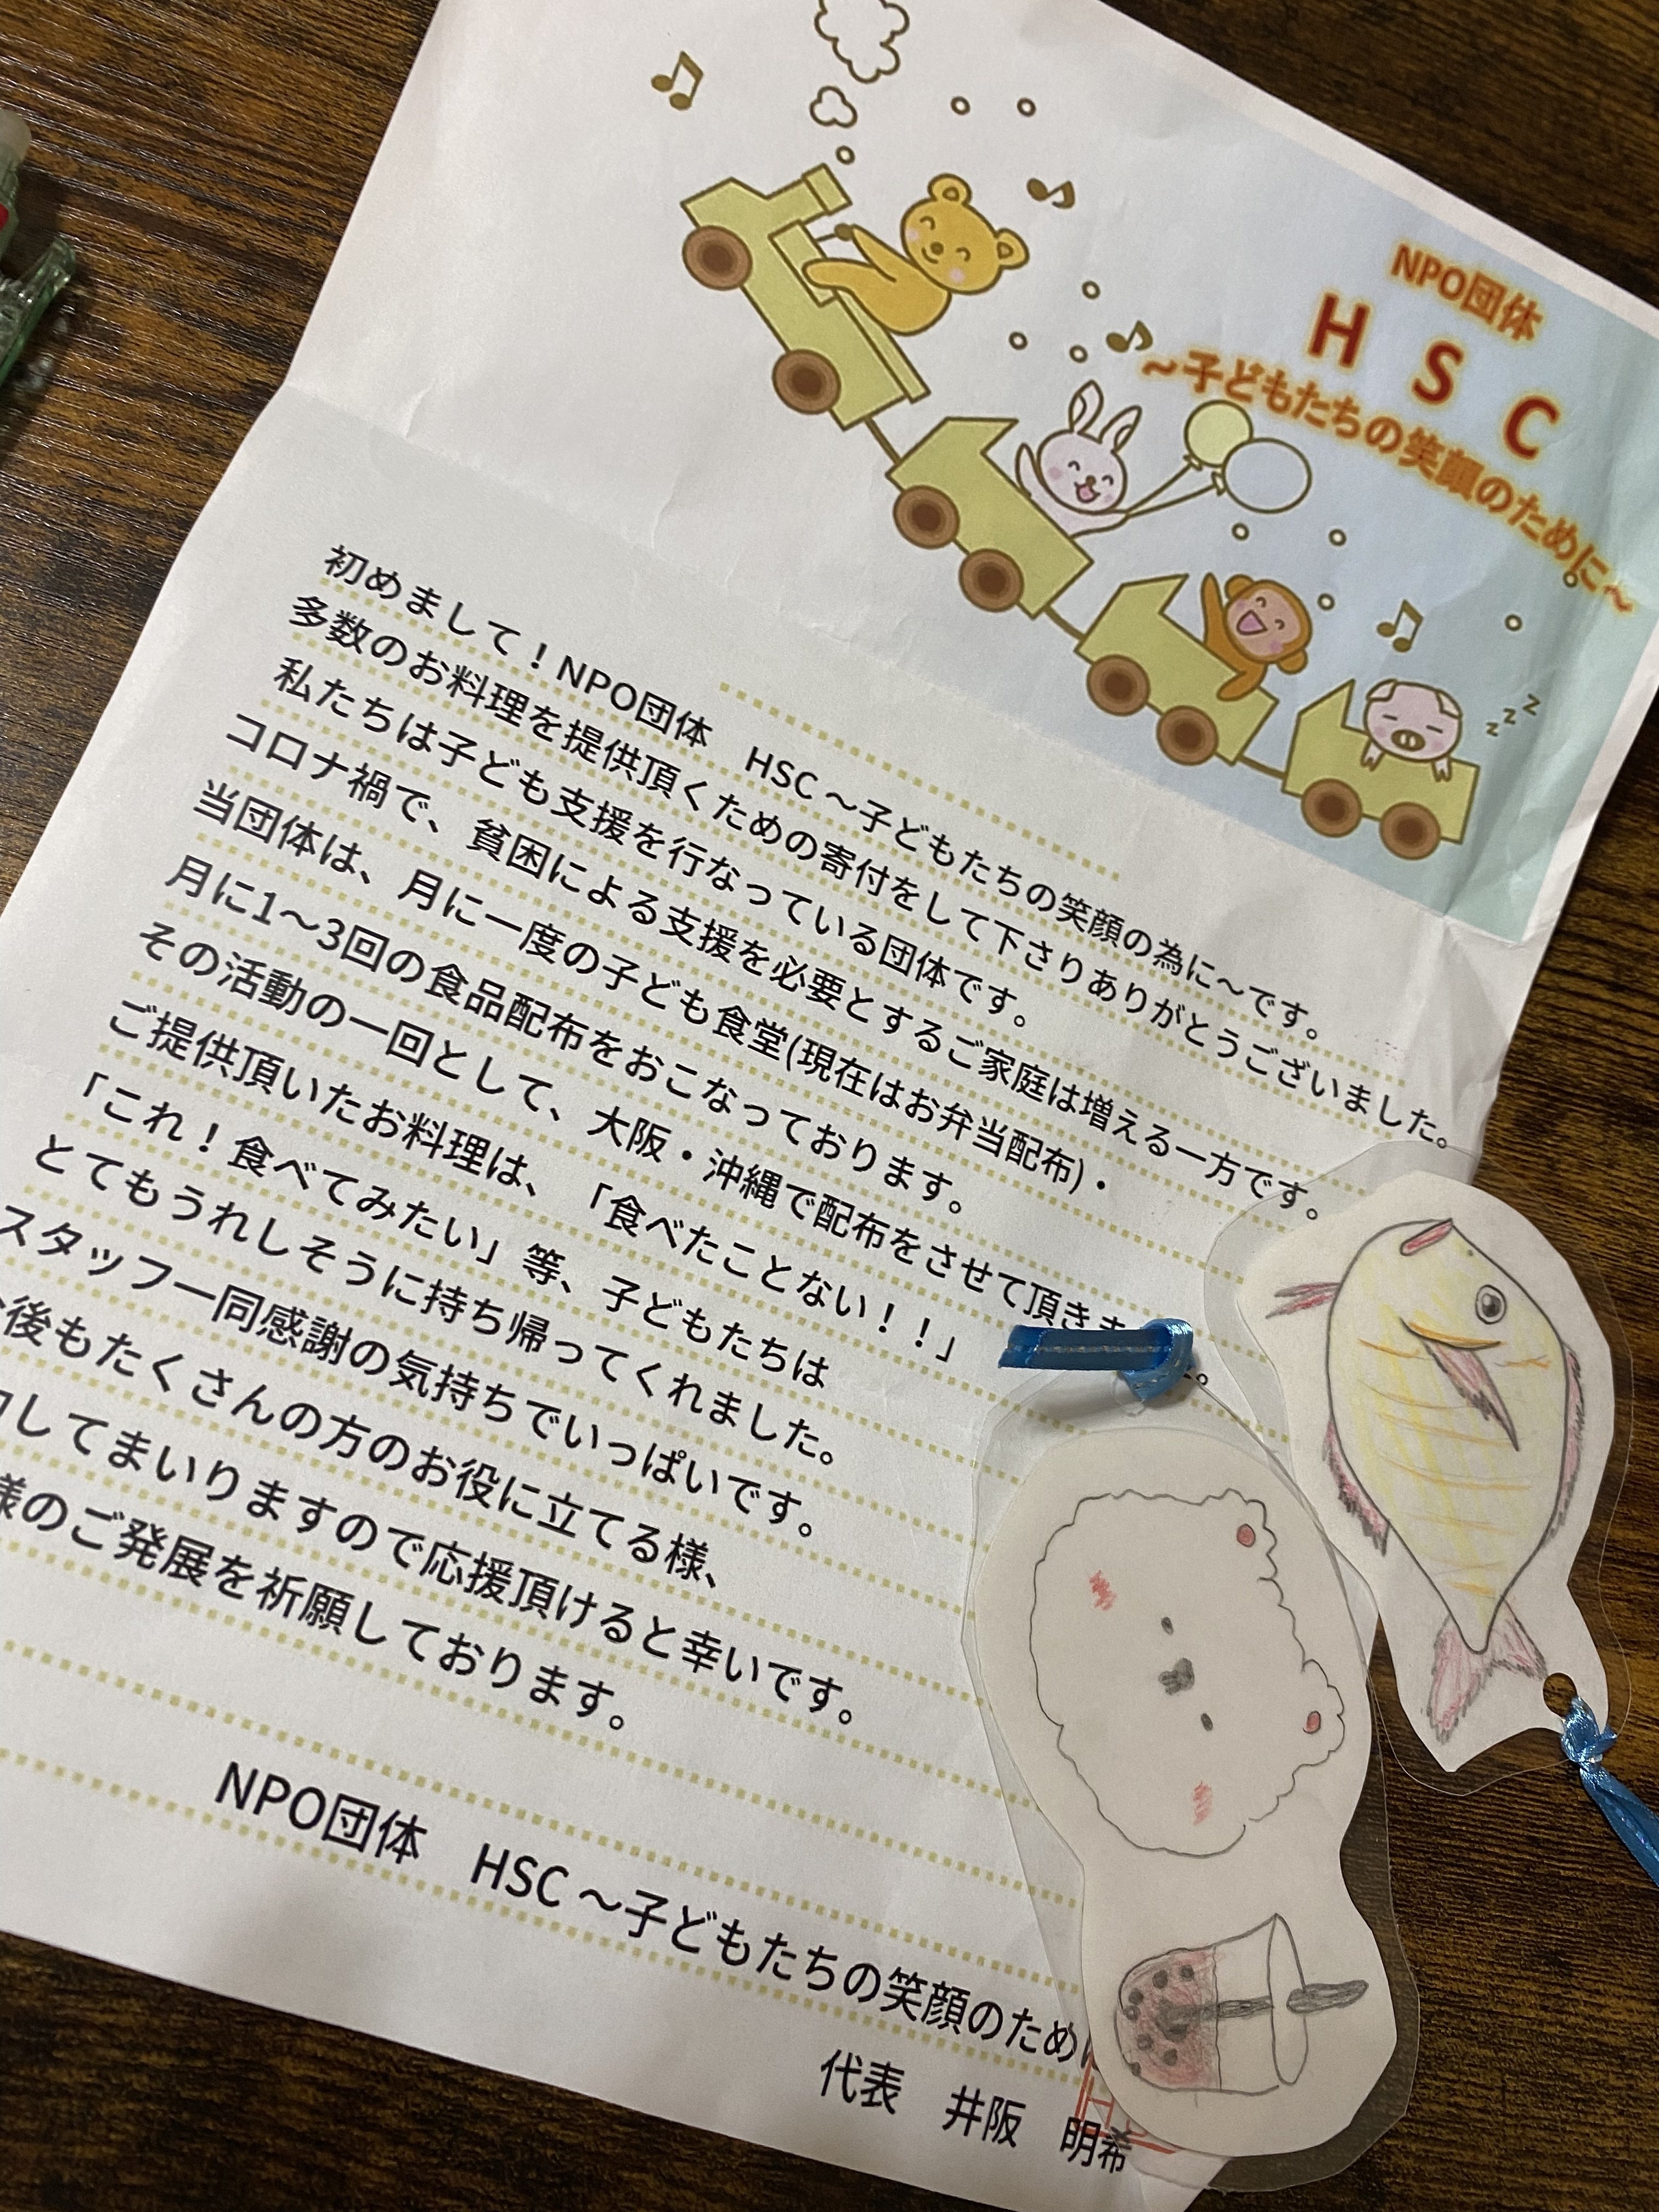 NPO団体
H S C
～子どもたちの笑顔のために～
初めまして！NPO団体　HSC～子どもたちの笑顔の為に～です。
多数のお料理を提供頂くための寄付をして下さりありがとうございました。
私たちは子ども支援を行なっている団体です。
コロナ禍で、貧困による支援を必要とするご家庭は増える一方です。
当団体は、月に一度の子ども食堂(現在はお弁当配布)・
月に1～3回の食品配布をおこなっております。
その活動の一回として、大阪・沖縄で配布をさせて頂きま
ご提供頂いたお料理は、「食べたことない！！」
「これ！食べてみたい」等、子どもたちは
とてもうれしそうに持ち帰ってくれました。
スタッフ一同感謝の気持ちでいっぱいです。
後もたくさんの方のお役に立てる様、
してまいりますので応援頂けると幸いです。
様のご発展を祈願しております。
NPO団体　HSC～子どもたちの笑顔のため
代表　井阪　明希
z z z